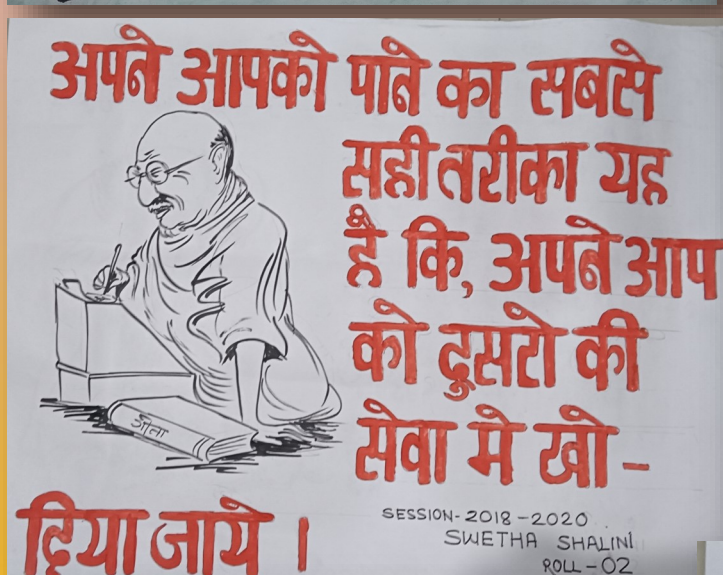 अपने आपको पाने का सबसे
सही तरीका यह
है कि, अपने आप
को दुसरो की
सेवा मे खो -
दिया जाये ।
गीता
SESSION-2018-2020
SWETHA SHALINI
ROLL-02